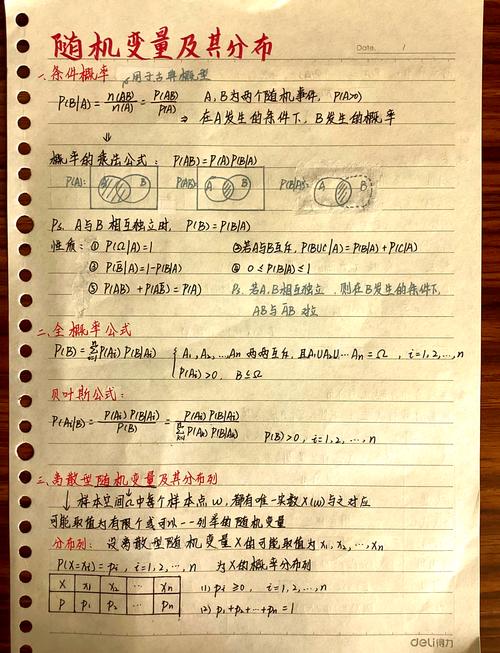 随机变量及其分布
Date. /
一、条件概率 用于古典概型
P(B|A) = n(AB)/n(A) = P(AB)/P(A) A、B为两个随机事件, P(A>0)
⇒ 在A发生的条件下, B发生的概率
⇓
概率的乘法公式: P(AB)=P(A)P(B|A)
P(A): A B P(AB): A B P(B|A): A B
Ps. A与B相互独立时, P(B)=P(B|A)
性质: ① P(Ω|A)=1 ②若A与B互斥, P(BUC|A)=P(B|A)+P(C|A)
③ P(B̄|A)=1-P(B|A) ④ 0≤P(B|A)≤1
⑤ P(AB)+P(AB̄)=P(A) Ps. 若A、B相互独立, 则在B发生的条件下,
AB与ĀB对立
二、全概率公式
P(B)=∑ⁿᵢ₌₁P(Ai)P(B|Ai) { A₁,A₂,…,An 两两互斥, 且A₁UA₂U…An=Ω, i=1,2,…,n
P(Ai)>0, B⊆Ω
贝叶斯公式:
P(Ai|B) = P(Ai)P(B|Ai)/P(B) = P(Ai)P(B|Ai)/∑ⁿₖ₌₁P(Ak)P(B|Ak) P(B)>0, i=1,2,…,n
三、离散型随机变量及其分布列
↓ 样本空间Ω中每个样本点ω, 都有唯一实数X(ω)与之对应
可能取值为有限个或可以一一列举的随机变量
分布列: 设离散型随机变量X的可能取值为x₁,x₂,…,xn
P(X=xi)=pi, i=1,2,…,n 为X的概率分布列
X x₁ x₂ … xn (1) pi≥0, i=1,2,…,n
P p₁ p₂ … pn (2) p₁+p₂+…+pn=1
deli得力